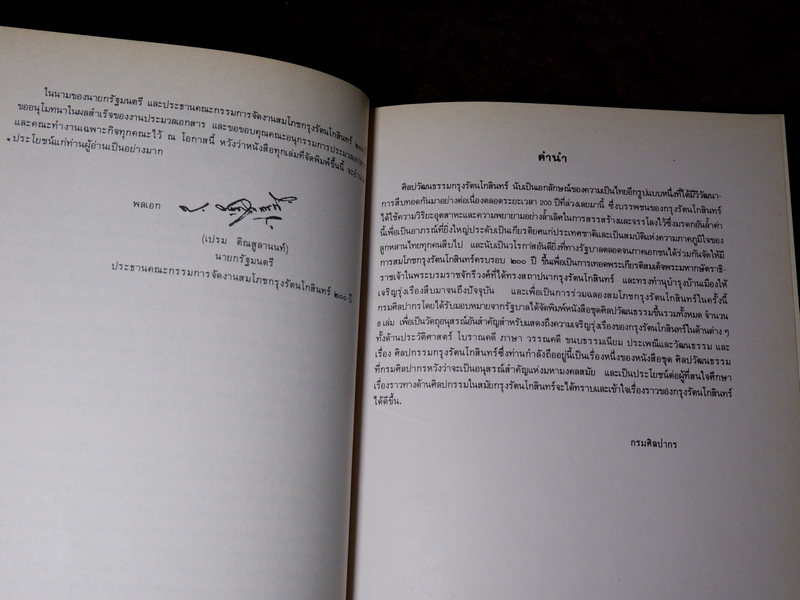 ในนามของนายกรัฐมนตรี และประธานคณะกรรมการจัดงานสมโภชกรุงรัตนโกสินทร์ ๒๐๐ ปี
ขออนุโมทนาในผลสำเร็จของงานประมวลเอกสาร และขอขอบคุณคณะอนุกรรมการประมวลเอกสาร
และคณะทำงานเฉพาะกิจทุกคณะไว้ ณ โอกาสนี้ หวังว่าหนังสือทุกเล่มที่จัดพิมพ์ขึ้นนี้ จะ
ประโยชน์แก่ท่านผู้อ่านเป็นอย่างมาก
พลเอก
(เปรม ติณสูลานนท์)
นายกรัฐมนตรี
ประธานคณะกรรมการจัดงานสมโภชกรุงรัตนโกสินทร์ ๒๐๐ ปี
คำนำ
ศิลปวัฒนธรรมกรุงรัตนโกสินทร์ นับเป็นเอกลักษณ์ของความเป็นไทยอีกรูปแบบหนึ่งที่ได้มีวิวัฒนา-
การสืบทอดกันมาอย่างต่อเนื่องตลอดระยะเวลา 200 ปีที่ล่วงเลยมานี้ ซึ่งบรรพชนของกรุงรัตนโกสินทร์
ได้ใช้ความวิริยะอุตสาหะและความพยายามอย่างล้ำเลิศในการสรรสร้างและจรรโลงไว้ซึ่งมรดกอันล้ำค่า
นี้เพื่อเป็นอาภรณ์ที่ยิ่งใหญ่ประดับเป็นเกียรติยศแก่ประเทศชาติและเป็นสมบัติแห่งความภาคภูมิใจของ
ลูกหลานไทยทุกคนสืบไป และนับเป็นวโรกาสอันดียิ่งที่ทางรัฐบาลตลอดจนภาคเอกชนได้ร่วมกันจัดให้มี
การสมโภชกรุงรัตนโกสินทร์ครบรอบ ๒๐๐ ปี ขึ้นเพื่อเป็นการเทอดพระเกียรติสมเด็จพระมหากษัตราธิ-
ราชเจ้าในพระบรมราชจักรีวงศ์ที่ได้ทรงสถาปนากรุงรัตนโกสินทร์ และทรงทำนุบำรุงบ้านเมืองให้
เจริญรุ่งเรืองสืบมาจนถึงปัจจุบัน และเพื่อเป็นการร่วมฉลองสมโภชกรุงรัตนโกสินทร์ในครั้งนี้
กรมศิลปากรโดยได้รับมอบหมายจากรัฐบาลได้จัดพิมพ์หนังสือชุดศิลปวัฒนธรรมขึ้นรวมทั้งหมด จำนวน
๘ เล่ม เพื่อเป็นวัตถุอนุสรณ์อันสำคัญสำหรับแสดงถึงความเจริญรุ่งเรืองของกรุงรัตนโกสินทร์ในด้านต่าง ๆ
ทั้งด้านประวัติศาสตร์ โบราณคดี ภาษา วรรณคดี ขนบธรรมเนียม ประเพณีและวัฒนธรรม และ
เรื่อง ศิลปกรรมกรุงรัตนโกสินทร์ซึ่งท่านกำลังถืออยู่นี้เป็นเรื่องหนึ่งของหนังสือชุด ศิลปวัฒนธรรม
ที่กรมศิลปากรหวังว่าจะเป็นอนุสรณ์สำคัญแห่งมหามงคลสมัย และเป็นประโยชน์ต่อผู้ที่สนใจศึกษา
เรื่องราวทางด้านศิลปกรรมในสมัยกรุงรัตนโกสินทร์จะได้ทราบและเข้าใจเรื่องราวของกรุงรัตนโกสินทร์
ได้ดีขึ้น.
กรมศิลปากร